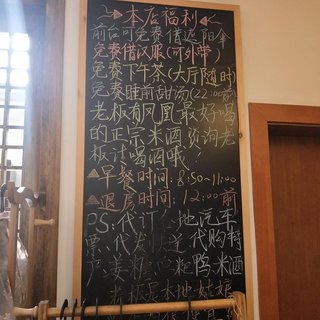 本店福利
前台可免费借遮阳伞
免费借汉服(可外带)
免费下午茶(大厅随时)
免费睡前甜汤(22:00前)
老板有凤凰最好喝
的正宗米酒,咨询老
板讨喝酒哦!
早餐时间:8:50~11:00
退房时间:12:00前
PS:代订 地汽车
票、代发快递 代购特
产:姜糖 鸭 米酒
老板是本地姑娘